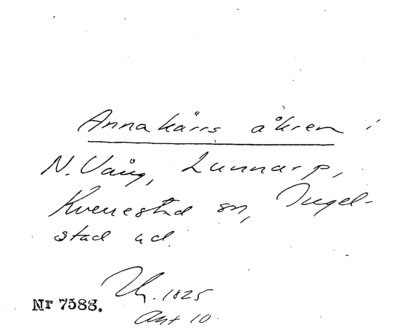 Annakärrs åkren i
N. Vång, Lunnarp,
Kverrestad sn, Ingel-
stad hd.
1825
Akt 10
Nr 7588.